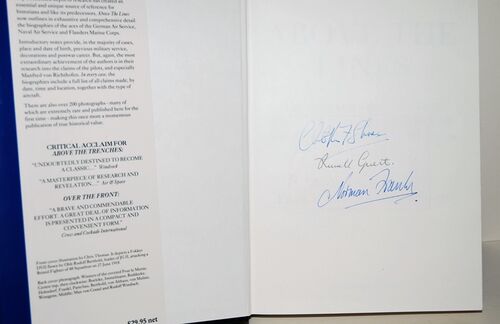 essential and unique source of reference for
historians and like its predecessors, Above The Lines
now outlines in exhaustive and comprehensive detail
the biographies of the aces of the German Air Service,
Naval Air Service and Flanders Marine Corps.
Introductory notes provide, in the majority of cases,
place and date of birth, previous military service,
decorations and postwar career. But, again, the most
extraordinary achievement of the authors is in their
research into the claims of the pilots, and especially
Manfred von Richthofen. In every case, the
biographies include a full list of all claims made, by
date, time and location, together with the type of
aircraft.
There are also over 200 photographs - many of
which are extremely rare and published here for the
first time - making this once more a momentous
publication of true historical value.
CRITICAL ACCLAIM FOR
ABOVE THE TRENCHES:
"UNDOUBTEDLY DESTINED TO BECOME
A CLASSIC..." Windsock
"A MASTERPIECE OF RESEARCH AND
REVELATION..." Air & Space
OVER THE FRONT:
"A BRAVE AND COMMENDABLE
EFFORT. A GREAT DEAL OF INFORMATION
IS PRESENTED IN A COMPACT AND
CONVENIENT FORM."
Cross and Cockade International
Front cover illustration by Chris. Thomas. It depicts a Fokker
DVII flown by Oblt Rudolf Berthold, leader of JG II, attacking a
Bristol Fighter of 48 Squadron on 27 June 1918.
Back cover photograph: Winners of the coveted Pour le Mérite
£29.95 net
Russell Guest.
Norman Franks